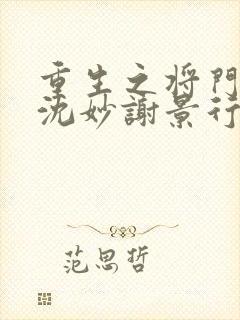 重生之将门
沈妙謝景行
范思哲